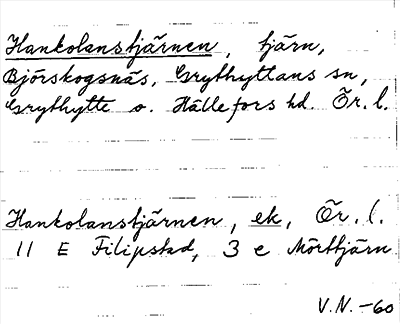 Hankolanstjärnen, tjärn,
Björskogsnäs, Grythyttans sn,
Grythytte o. Hällefors hd. Ör. l.
Hankolanstjärnen, ek, Ör. l.
11 E Filipstad, 3 e Mörttjärn
V.N. -60